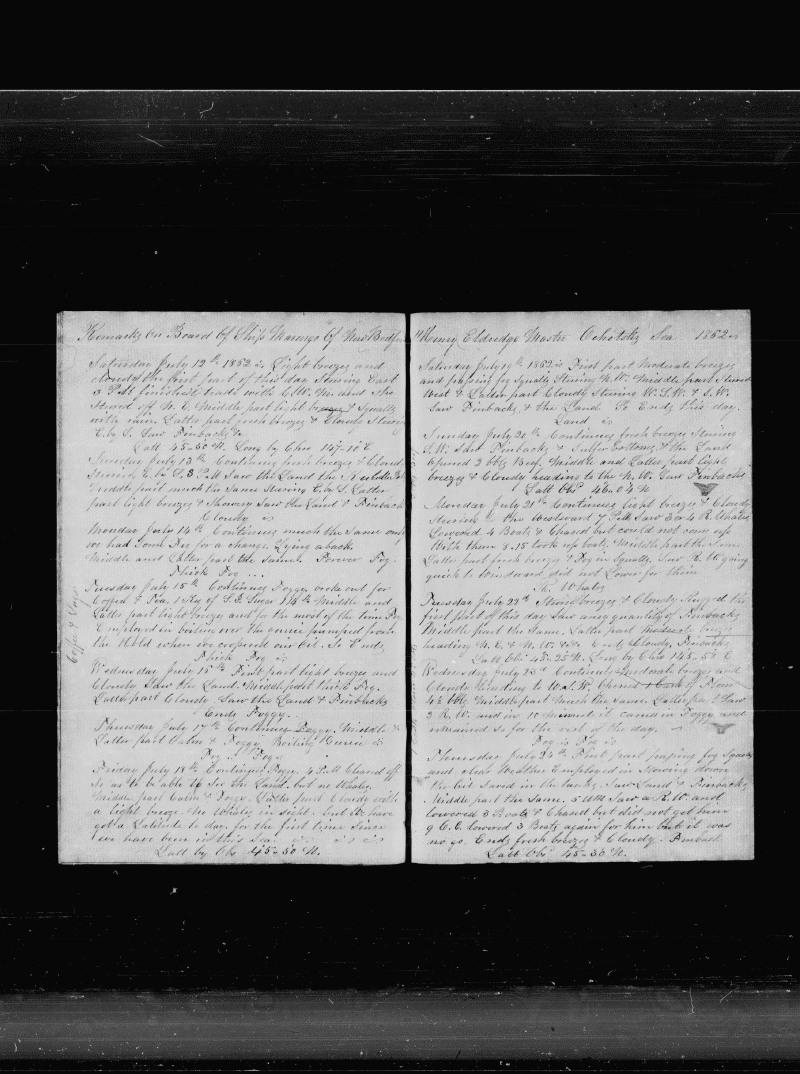 Remarks on Board of Ship Marengo of New Bedford
Saturday July 12th 1852 Light breezes and
Cloudy the first part of this day Steering East
3 P.M. finished trade with
Steered off N.E. Middle part light breezes & Squally
with rain Latter part fresh breezes & Cloudy Steering
E. by S. Saw Finbacks &
Latt 45-30 N. Long by Chro 147-10 E
Sunday July 13th Continues fresh breezes & Cloudy
Steering E. by S. 3 P.M Saw the Land
Middle part much the Same Steering E. by S. Latter
part light breezes & Showery Saw the Land & Finbacks
Cloudy
Monday July 14th Continues much the Same only
we had Some Fog for a change Lying aback
Middle and Latter part the Same. Forever Fog.
Thick Fog
Tuesday July 15th Continues Foggy broke out for
Coffee & Tea. 1 Keg of Sugar 114 lb Middle and
Latter part light breezes and for the most of the time Fog
Employed in boiling over the pumped from
the Hold when we coopered our oil. So Ends
Thick Fog
Coffee & Sugar
Wednesday July 16th First part light breezes and
Cloudy Saw the Land. Middle part thick Fog.
Latter part Cloudy Saw the Land & Finbacks
Ends Foggy.
Thursday July 17th Continues Foggy. Middle &
Latter part Calm & Foggy Boiling
Fog & Fog
Friday July 18th Continues Foggy. 4 P.M Cleared off
So as to be able to See the Land. but no Whales
Middle part Calm & Foggy. Latter part Cloudy with
a light breeze No Whales in Sight. but We have
got a Latitude to day for the first time Since
we have been in this Sea.
Latt by Obs 45-50 N.
Henry Eldredge Master Ochotsk Sea 1852
Saturday July 19th 1852 First part Moderate breezes
and passing fog Squalls Steering N.W. Middle part Steered
West & Latter part Cloudy Steering W.S.W. & S.W.
Saw Finbacks & the Land. So Ends this day.
Land
Sunday July 20th Continues fresh breezes Steering
S.W. Saw Finbacks & Sulfer bottoms & the Land
Opened 2 bbls Beef. Middle and Latter part light
breezes & Cloudy heading to the N.W. Saw Finbacks
Latt Obs 46-04 N
Monday July 21st Continues light breezes & Cloudy
Steering to the Westward 7 P.M Saw 3 or 4 R. Whales
Lowered 4 Boats & Chased but could not come up
With them 8.15 took up boats. Middle part the Same
Latter part fresh breezes & Fog in Squalls. Saw R.W. going
quick to windward did not Lower for them
R. Whales
Tuesday July 22nd Strong breezes & Cloudy the
first part of this day Saw any quantity of Finbacks
Middle part the Same. Latter part
heading N.E. & N.W. Ends Cloudy Finbacks
Latt Obs 45-25 N. Long by Chro 145-55 E
Wednesday July 23rd Continues breezes and
Cloudy heading to W.S.W. Opened Flour
Middle part Much the Same. Latter part Saw
2 R.W. and in 10 minutes it came in Foggy and
remained so for the rest of the day.
Fog is Fog
Thursday July 24th First part passing fog Squalls
and clear Weather Employed in Stowing down
the Oil Saved in the tanks. Saw Land & Finbacks
Middle part the Same. 5 AM Saw a R.W. and
lowered 3 Boats & Chased but did not get him
lowered 3 Boats again for him but it was
no go. Ends fresh breezes & Cloudy. Finback
Latt Obs 45-36 N.